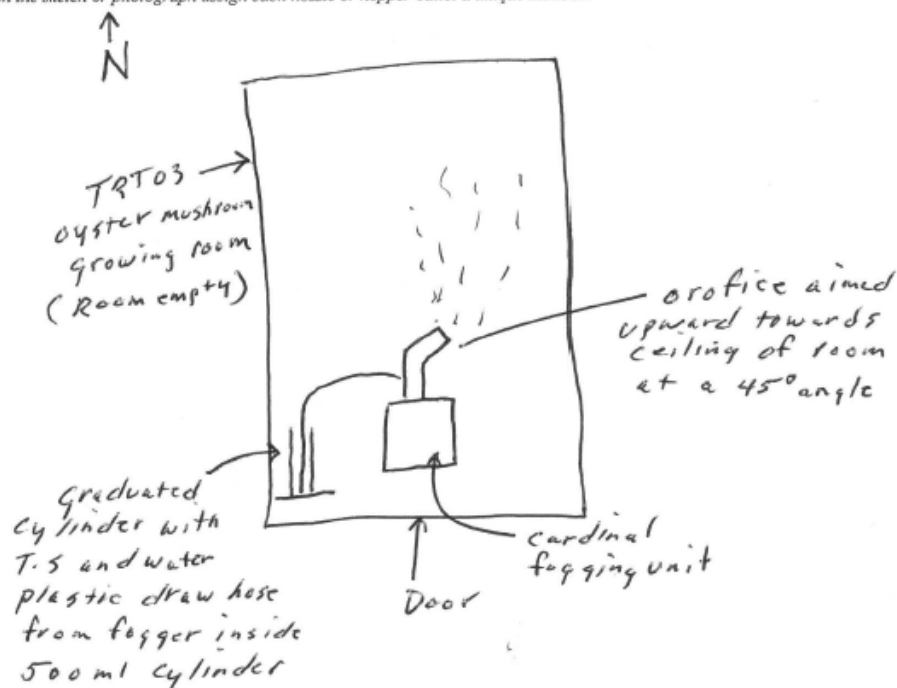 N
TRT03
oyster mushroom
growing room
(Room empty)
orofice aimed
upward towards
ceiling of room
at a 45° angle
graduated
cylinder with
T.S and water
plastic draw hose
from fogger inside
500 ml cylinder
cardinal
fogging unit
Door